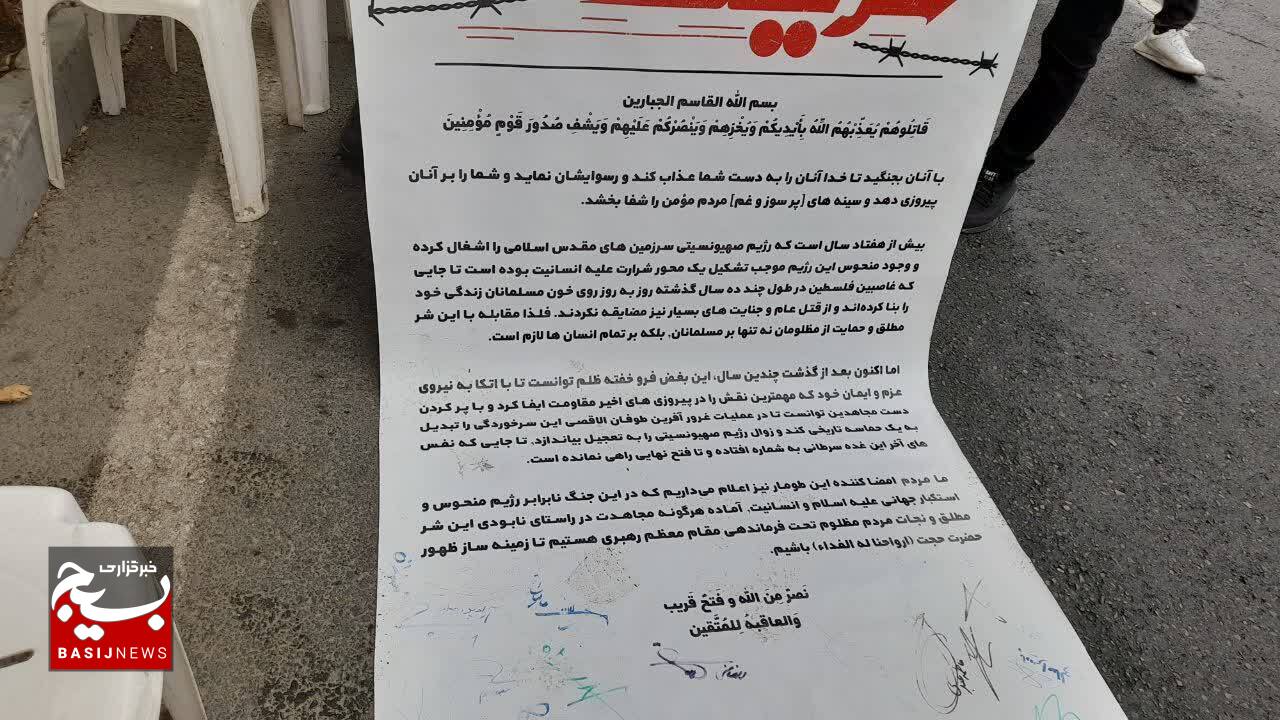 بسم الله القاسم الجبارین
قَاتِلُوهُمْ يُعَذِّبْهُمُ اللَّهُ بِأَيْدِيكُمْ وَيُخْزِهِمْ وَيَنْصُرْكُمْ عَلَيْهِمْ وَيَشْفِ صُدُورَ قَوْمٍ مُؤْمِنِينَ
با آنان بجنگید تا خدا آنان را به دست شما عذاب کند و رسوایشان نماید و شما را بر آنان
پیروزی دهد و سینه های [پر سوز و غم] مردم مؤمن را شفا بخشد.
بیش از هفتاد سال است که رژیم صهیونسیتی سرزمین های مقدس اسلامی را اشغال کرده
و وجود منحوس این رژیم موجب تشکیل یک محور شرارت علیه انسانیت بوده است تا جایی
که غاصبین فلسطین در طول چند ده سال گذشته روز به روز روی خون مسلمانان زندگی خود
را بنا کرده‌اند و از قتل عام و جنایت های بسیار نیز مضایقه نکردند. فلذا مقابله با این شر
مطلق و حمایت از مظلومان نه تنها بر مسلمانان، بلکه بر تمام انسان ها لازم است.
اما اکنون بعد از گذشت چندین سال، این بغض فرو خفته ظلم توانست تا با اتکا به نیروی
عزم و ایمان خود که مهمترین نقش را در پیروزی های اخیر مقاومت ایفا کرد و با پر کردن
دست مجاهدین توانست تا در عملیات غرور آفرین طوفان الاقصی این سرخوردگی را تبدیل
به یک حماسه تاریخی کند و زوال رژیم صهیونسیتی را به تعجیل بیاندازد. تا جایی که نفس
های آخر این غده سرطانی به شماره افتاده و تا فتح نهایی راهی نمانده است.
ما مردم امضا کننده این طومار نیز اعلام می‌داریم که در این جنگ نابرابر رژیم منحوس و
استکبار جهانی علیه اسلام و انسانیت، آماده هرگونه مجاهدت در راستای نابودی این شر
مطلق و نجات مردم مظلوم تحت فرماندهی مقام معظم رهبری هستیم تا زمینه ساز ظهور
حضرت حجت (ارواحنا له الفداء) باشیم.
نَصرٌ مِنَ الله و فَتحٌ قَریب
وَالعاقبةُ لِلمُتَّقین
خبرگزاری
بسیج
BASIJNEWS